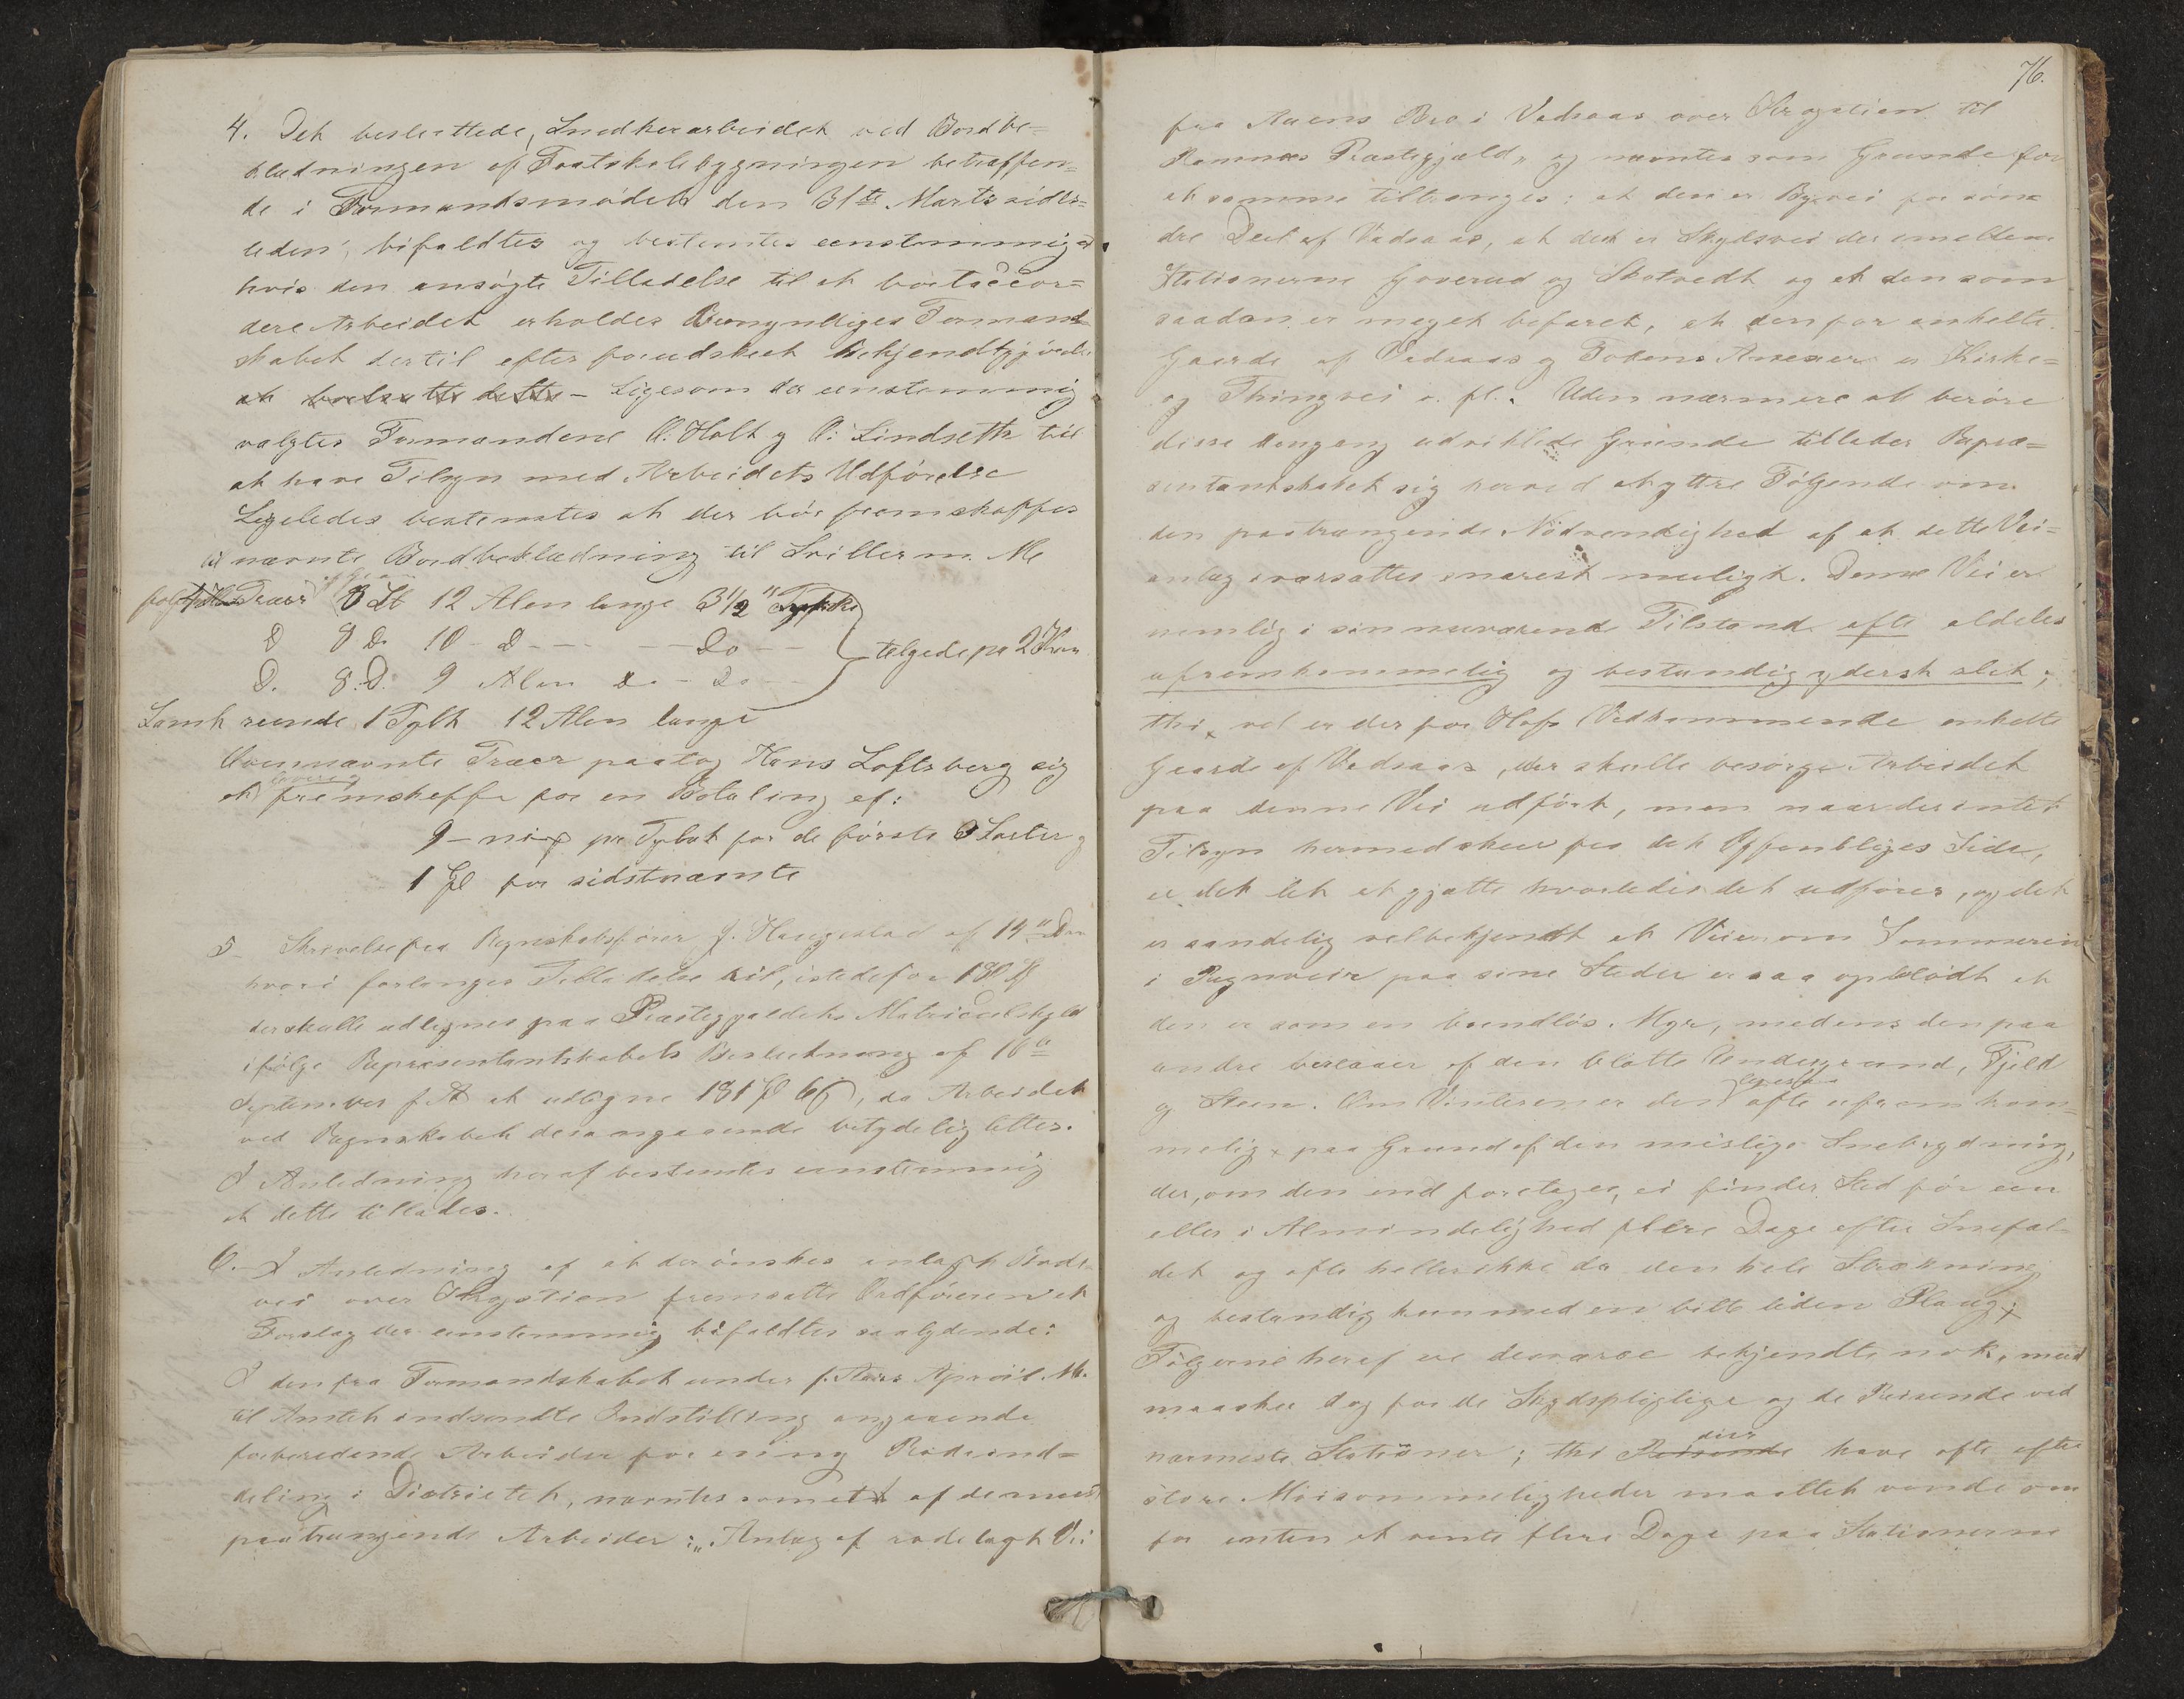 4. Det besluttede, Snedkerarbeidet ved Bordbe=
klædningen af Fastskolebygningen betræffen=
de i Formandsmødet den 31te Marts sidst=
leden, bifaldtes og bestemtes eenstemmig at
hvis den ansøgte Tilladelse til at bortaccor=
dere Arbeidet erholdes bemyndiges Formand=
skabet dertil efter foreudskeet Bekjendtgjørelse
at bortsætte dette – Ligesom der eenstemmig
valgtes Formandene O. Holt og O. Lindseth til
at have Tilsyn med Arbeidets Udførelse
Ligeledes bestemtes at der bør fremskaffes
til nævnte Bordbeklædning til Sviller m. M.
følgende Træer 8 St 12 Alen lange 3 1/2 "
D 8 D. 10 - D - - - - Do - -
D. 8. D. 9 Alen Do - Do - -
telgede paa 2 Kan
Samt runde 1 Tylt 12 Alen lange
Ovennævnte Træer paatog Hans Loftsberg sig
at levere og fremskaffe for en Betaling af:
9 – ni pr Tylvt for de første 3 Sorter og
1 Spd for sidstnævnte
5 – Skrivelse fra Regnskabsfører J. Haugestad af 14de Ds
hvori forlanges Tilladelse til, istedefor 180 Spd
der skulle udlignes paa Præstegjældets Matriculskyld
ifølge Repræsentantskabets Beslutning af 16de
September f. A. at udligne 181 Spd 66 s, da Arbeidet
ved Regnskabet desangaaende betydelig lettes.
I Anledning heraf bestemtes eenstemmig
at dette tillades.
6. – I Anledning af at der ønskes anlagt Rode
vei over Krogstien fremsatte Ordføreren et
Forslag der eenstemmig bifaldtes saalydende:
I den fra Formandskabet under f. Aars April M.
til Amtet indsendte Indstilling angaaende
forberedende Arbeider for en ny Rodeind=
deling i Districtet, nævntes som et af de mest
paatrængende Arbeider: „Anlæg af rodelagt Vei
76.
fra Aaens Bro i Vadsaas over Krogstien til
Ramnæs Præstegjæld„ og nævntes som Grunde for
at samme tiltrænges: at den er Byvei for søn=
dre Deel af Vadsaas, at det er Skydsvei der imellem
Stationerne Goverud og Skotvedt og at den som
saadan er meget befaret, at den for enkelte
Gaarde af Vadsaas og Fokens Annexer er Kirke=
og Thingvei o. fl. Uden nærmere at berøre
disse dengang udviklede Grunde tillader Repræ=
sentantskabet sig herved at yttre Følgende om
den paatrængende Nødvendighed af at dette Vei=
anlæg iværsættes snarest mueligt. Denne Vei er
nemlig i sin nuværende Tilstand ofte aldeles
ufremkommelig og bestandig yderst slet;
thi vel er der for Hofs Vedkommende enkelte
Gaarde af Vadsaas, der skulle besørge Arbeidet
paa denne Vei udført, men naar der intet
Tilsyn hermed skeer fra det Offentliges Side,
er det let at gjætte hvorledes det udføres, og det
er sandelig velbekjendt at Veien om Sommeren
i Regnveir paa sine Steder er saa opblødt at
den er som en bundløs Myr, medens den paa
andre bestaaer af den blotte Undergrund, Fjeld
og Steen. Om Vinteren er den ofte ufremkom=
melig paa Grund af den mislige Snebrydning,
der, om den end foretages, ei finder Sted før een
eller i Almindelighed flere Dage efter Snefal=
det og ofte heller ikke da den hele Strækning
og bestandig kun med en bitte liden Ploug;
Følgerne heraf ere desværre bekjendte nok, mest
maaskee dog for de Skydspligtige og de Reisende ved
nærmeste Stationer; thi Reisende disse have ofte efter
store Møisommeligheder maattet vende om
for enten at vente flere Dage paa Stationerne